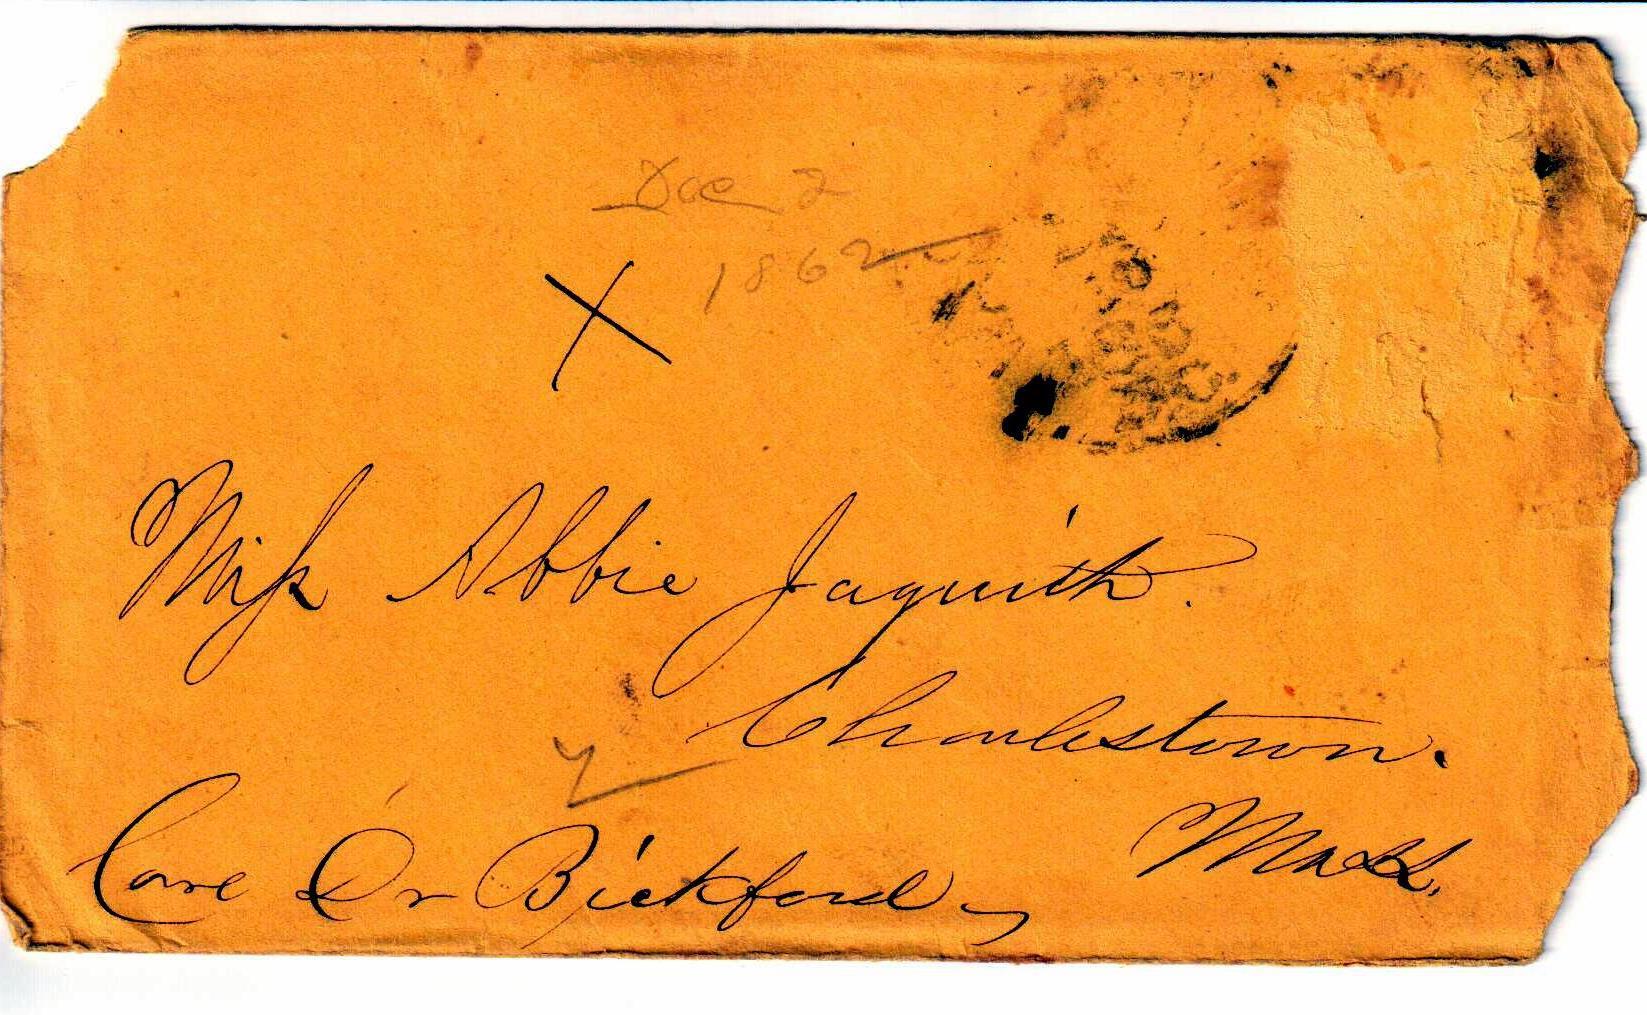 Dec 2
1862
X
Miss Abbie Jaquith.
Charlestown.
Mass.
Care Dr Bickford